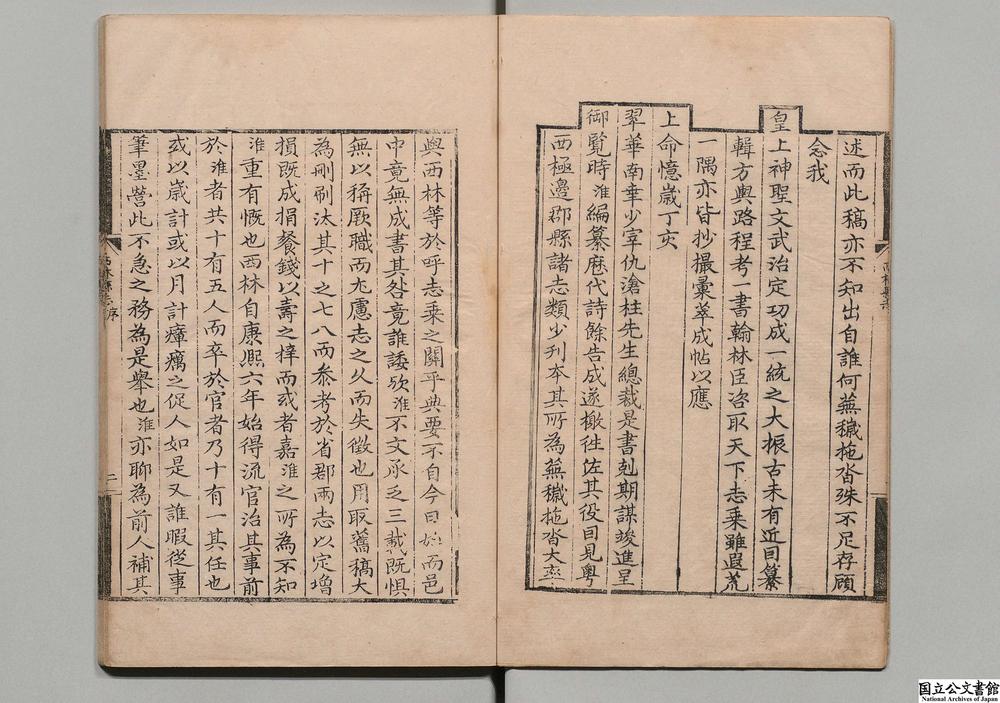 述而此稿亦不知出自誰何蕪穢拖沓殊不足存顧
念我
皇上神聖文武治定功成一統之大振古未有近因纂
輯方輿路程考一書翰林臣咨取天下志乘雖遐荒
一隅亦皆抄撮彙萃成帖以應
上命憶歲丁亥
翠華南幸少宰仇滄柱先生總裁是書剋期謀竣進呈
御覽時淮編纂歷代詩餘告成遂檄徃佐其役因見粵
西極邊郡縣諸志類少刋本其所為蕪穢拖沓大率
與西林等於呼志乘之關乎典要不自今日始而邑
中竟無成書其咎竟誰諉欤淮不文承乏三載既惧
無以稱厥職而尤慮志之久而失徵也用取舊稿大
為刪刷汰其十之七八而叅考於省郡兩志以定增
損既成捐餐錢以壽之梓而或者嘉淮之所為不知
淮重有慨也西林自康熙六年始得流官治其事前
於淮者共十有五人而卒於官者乃十有一其任也
或以歲計或以月計瘴癘之促人如是又誰暇從事
筆墨營此不急之務為是舉也淮亦聊為前人補其
序
二
国立公文書館
National Archives of Japan